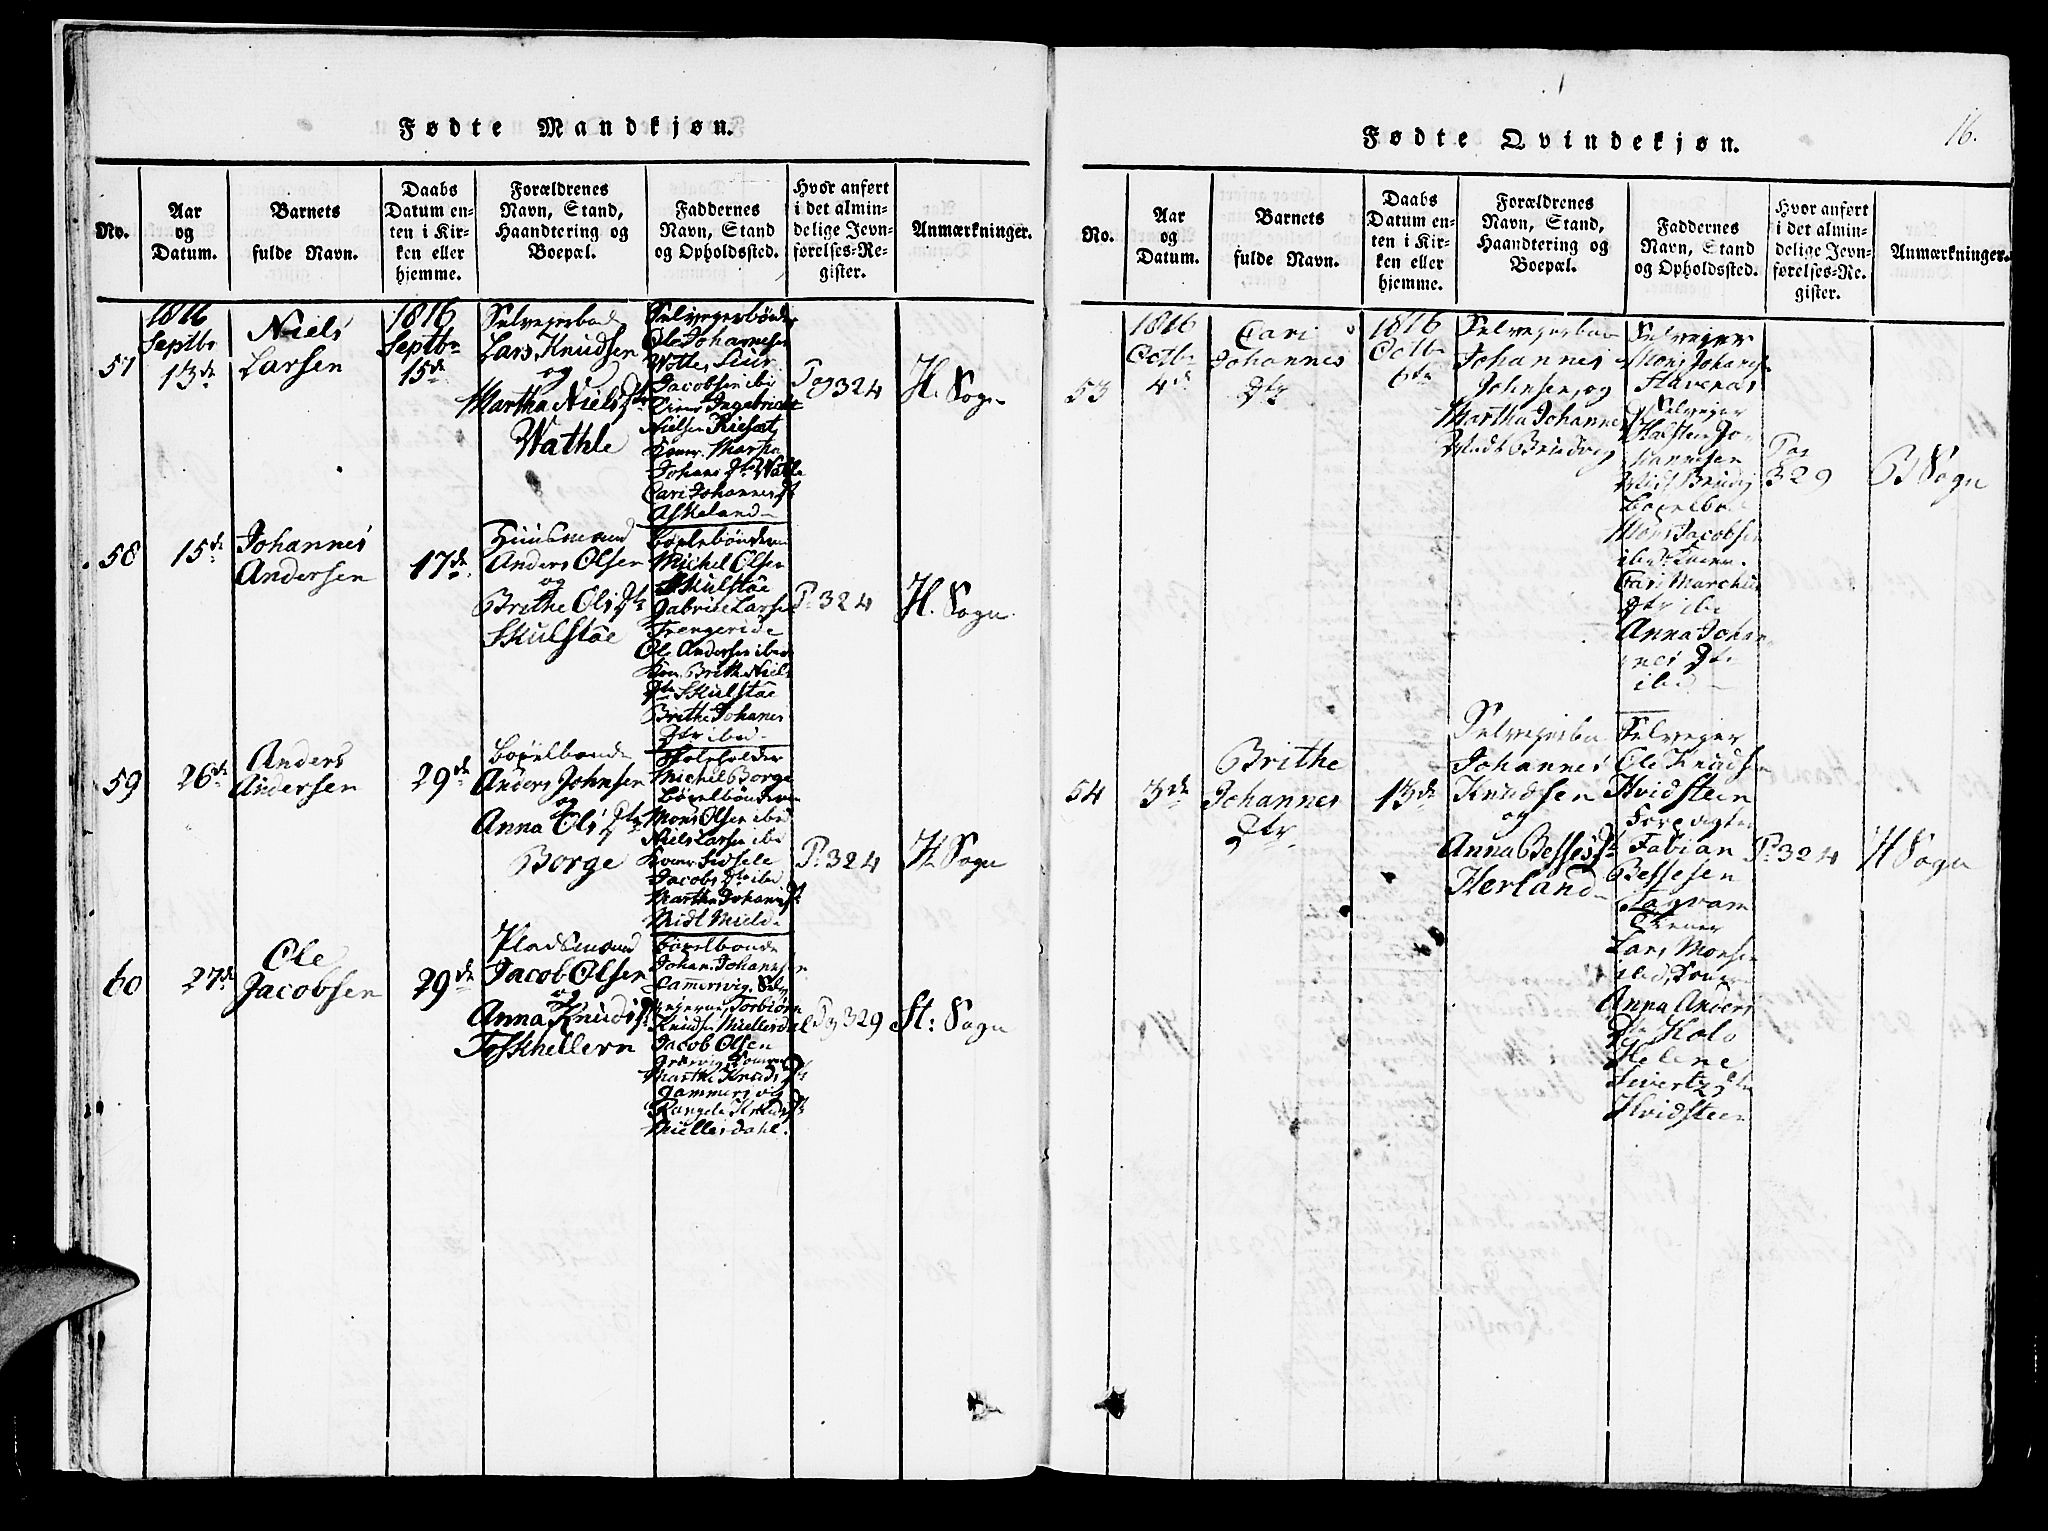 Fødte Mandkjøn.
No.
Aar
og
Datum.
Barnets
fulde Navn.
Daabs
Datum en-
ten i Kir-
ken eller
hjemme.
Forældrenes
Navn, Stand,
Haandtering og
Boepæl.
Faddernes
Navn, Stand
og Opholdssted.
Hvor anført
i det almin-
delige Jevn-
førelses-Re-
gister.
Anmærkninger.
57
1816
Septbr
13de
Niels
Larsen
1816
Septbr
15de
Selveyerbonde
Lars Knudsen
og
Martha Nielsdtr
Wathle
Selveyerbønder
Ole Johannesen
Jacobsen ibid
Ingebrict
Nielsen
Johans Dtr Watle
Cari Johannes Dtr
Askeland
Pag 324
H. Sogn
58
15de
Johannes
Andersen
17de
Huusmand
Anders Olsen
og
Brithe Ols Dtr
Skulstøe
Bøxelbønderne
Michel Olsen
Skulstøe
Gabriel Larsen
Ole Andersen ibid
Kon. Brithe Niels
Dtr Skulstøe
Brithe Johanes
Dtr ibid
P. 324
H. Sogn
59
26de
Anders
Andersen
29de
Bøxelbonde
Anders Johnsen
og
Anna Ols Dtr
Borge
Skoleholder
Michel Borge
Bøxelbønderne
Mons Olsen ibid
Niels Larsen ibid
Koner Sidsele
Jacobs Dtr ibid
Martha Johanis Dtr
Midt Mield
P. 324
H Sogn
60
27de
Ole
Jacobsen
29de
Pladsmand
Jacob Olsen
og
Anna Knuds Dtr
Toskhellern
Bøxelbonde
Johan Johannesen
Gamersvig, Selv
eyerne, Torbiørn
Knudsen Miellesdal
Jacob Olsen
Marthe Knuds Dtr
Gammersvig
Rangele Knuds Dtr
Miellesdahl.
Pag 329
St: Sogn
16.
Fødte Qvindekjøn.
No.
Aar
og
Datum.
Barnets
fulde Navn.
Daabs
Datum en-
ten i Kir-
ken eller
hjemme.
Forældrenes
Navn, Stand,
Haandtering og
Boepæl.
Faddernes
Navn, Stand
og Opholdssted.
Hvor anført
i det almin-
delige Jevn-
førelses-Re-
gister.
Anmærkninger.
53
1816
Octbr
4de
Cari
Johannes
Dtr
1816
Octbr
6te
Selveyerbon
Johannes
Johnsen, og
Martha Johannes Dtr
Midt Brudvig
Selveyer
Mons Johanes
Selveyer
Halsteen Jo-
hannesen
Midt Brudvig
Bøxelbon
Mons Jacobsen
ibid
Cari Marchus
Dtr ibid
Anna Johan-
nes Dtr
ibid
Pag
329
B Sogn
54
3de
Brithe
Johannes
Dtr
13de
Selveyerbon
Johannes
Knudsen
og
Anna Besses Dtr
Herland
Selveyer
Ole Knudsen
Hvidsteen
Fabian
Bessesen
Lars Monsen
ibid, Koner
Anna Anders
Dtr Holo
Helene
Sivertz Dtr
Hvidsteen
P. 324
H Sogn